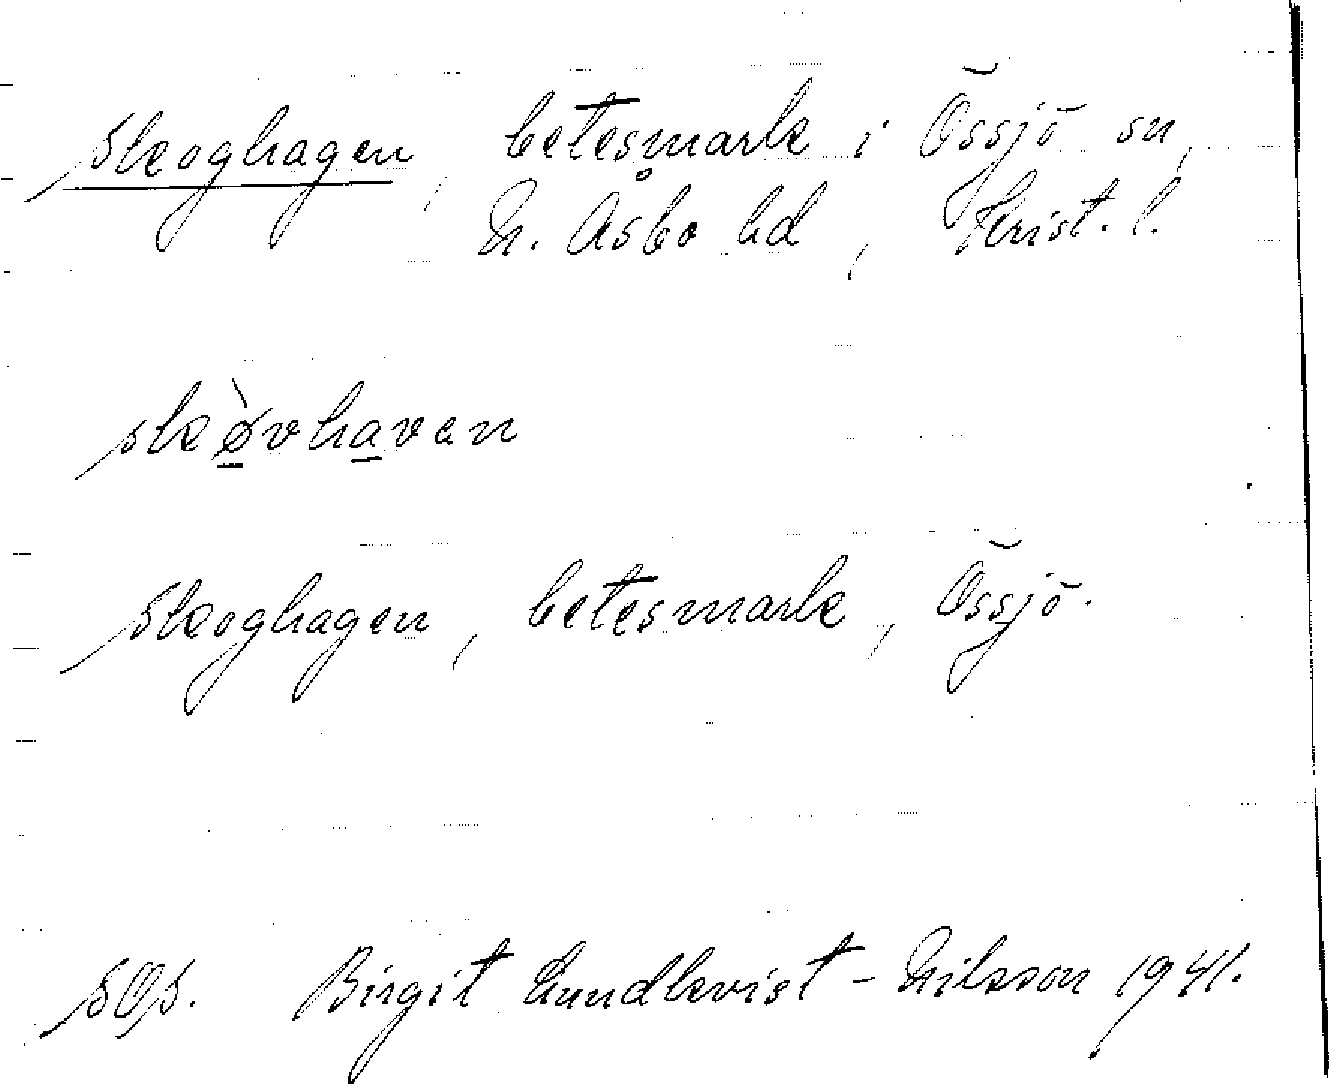 Skoghagen, betesmark i Össjö sn,
N. Åsbo hd, Krist. l.
skø̀vhaven
Skoghagen, betesmark, Össjö.
Birgit Lundkvist-Nilsson 1941.